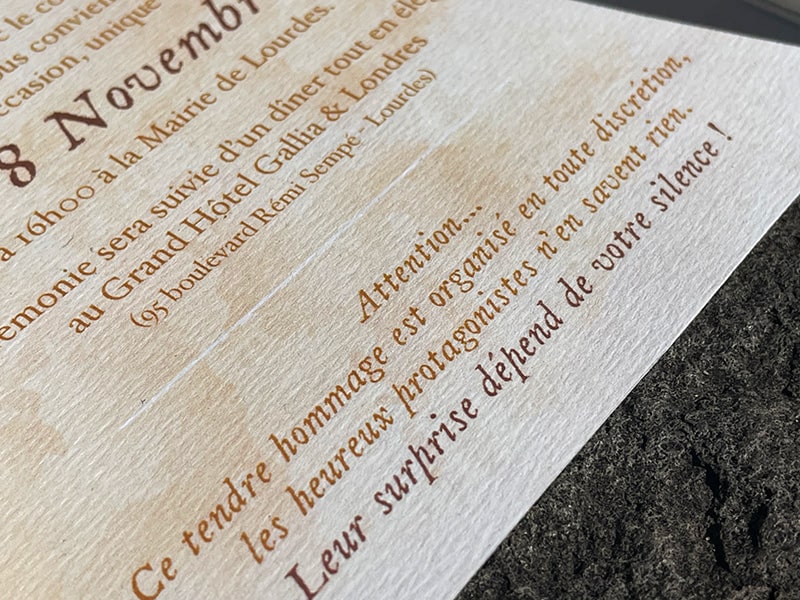 le
vous convien
occasion, unique
8 Novembr
à 16h00 à la Mairie de Lourdes.
sera suivie d'un dîner tout en
au Grand Hôtel Gallia & Londres
(95 boulevard Rémi Sempé - Lourdes)
Attention...
Ce tendre hommage est organisé en toute discrétion,
les heureux protagonistes n'en savent rien.
Leur surprise dépend de votre silence !